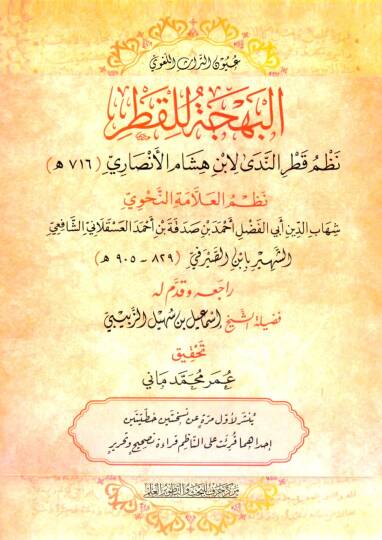 عُيُونُ التُّرَاثِ اللُّغَوِيِّ
البَهْجَةُ لِلْقَطْرِ
نَظْمُ قَطْرِ النَّدَى لِابْنِ هِشَامِ الأَنْصَارِيِّ (٧١٦ هـ)
نَظْمُ العَلَّامَةِ النَّحْوِيِّ
شِهَابِ الدِّينِ أَبِي الفَضْلِ أَحْمَدَ بْنِ صَدَقَةَ بْنِ أَحْمَدَ العَسْقَلَانِيِّ الشَّافِعِيِّ
الشَّهِيرِ بِابْنِ الصَّيْرَفِيِّ (٨٢٩ - ٩٠٥ هـ)
راجعه وقدَّم له
فضيلة الشيخ إسماعيل بن سُهيل الزَّبيبيّ
تحقيق
عمر محمد ماني
يُنشَر لأوّل مرّةٍ عن نسختين خطيّتين
إحداهما قُرِئَت على النّاظِم قراءة تصحيحٍ وتحريرٍ
مركز حرف للبحث والتطوير العلمي